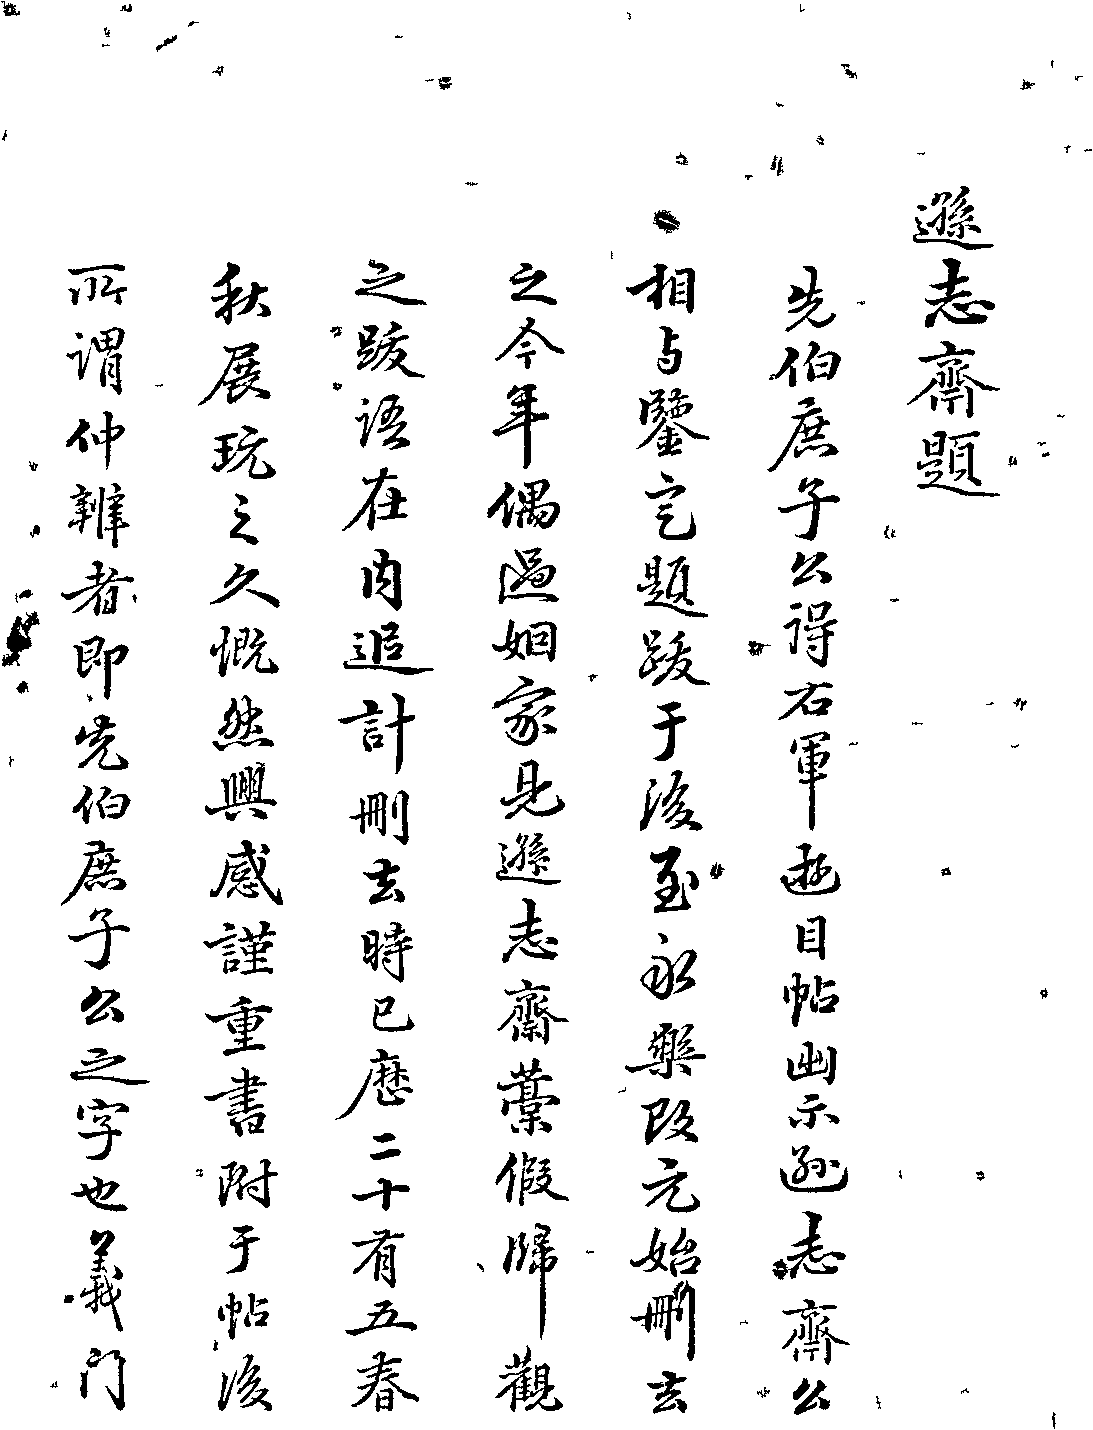 遜志齋題
先伯庶子公得右軍遊目帖出示遜志齋公
相与鑒定題跋于後至永樂改元始刪去
之今年偶過姻家見遜志齋藁假歸觀
之跋語在內追計刪去時已歷二十有五春
秋展玩之久慨然興感謹重書附于帖後
所謂仲辨者即先伯庶子公之字也義門